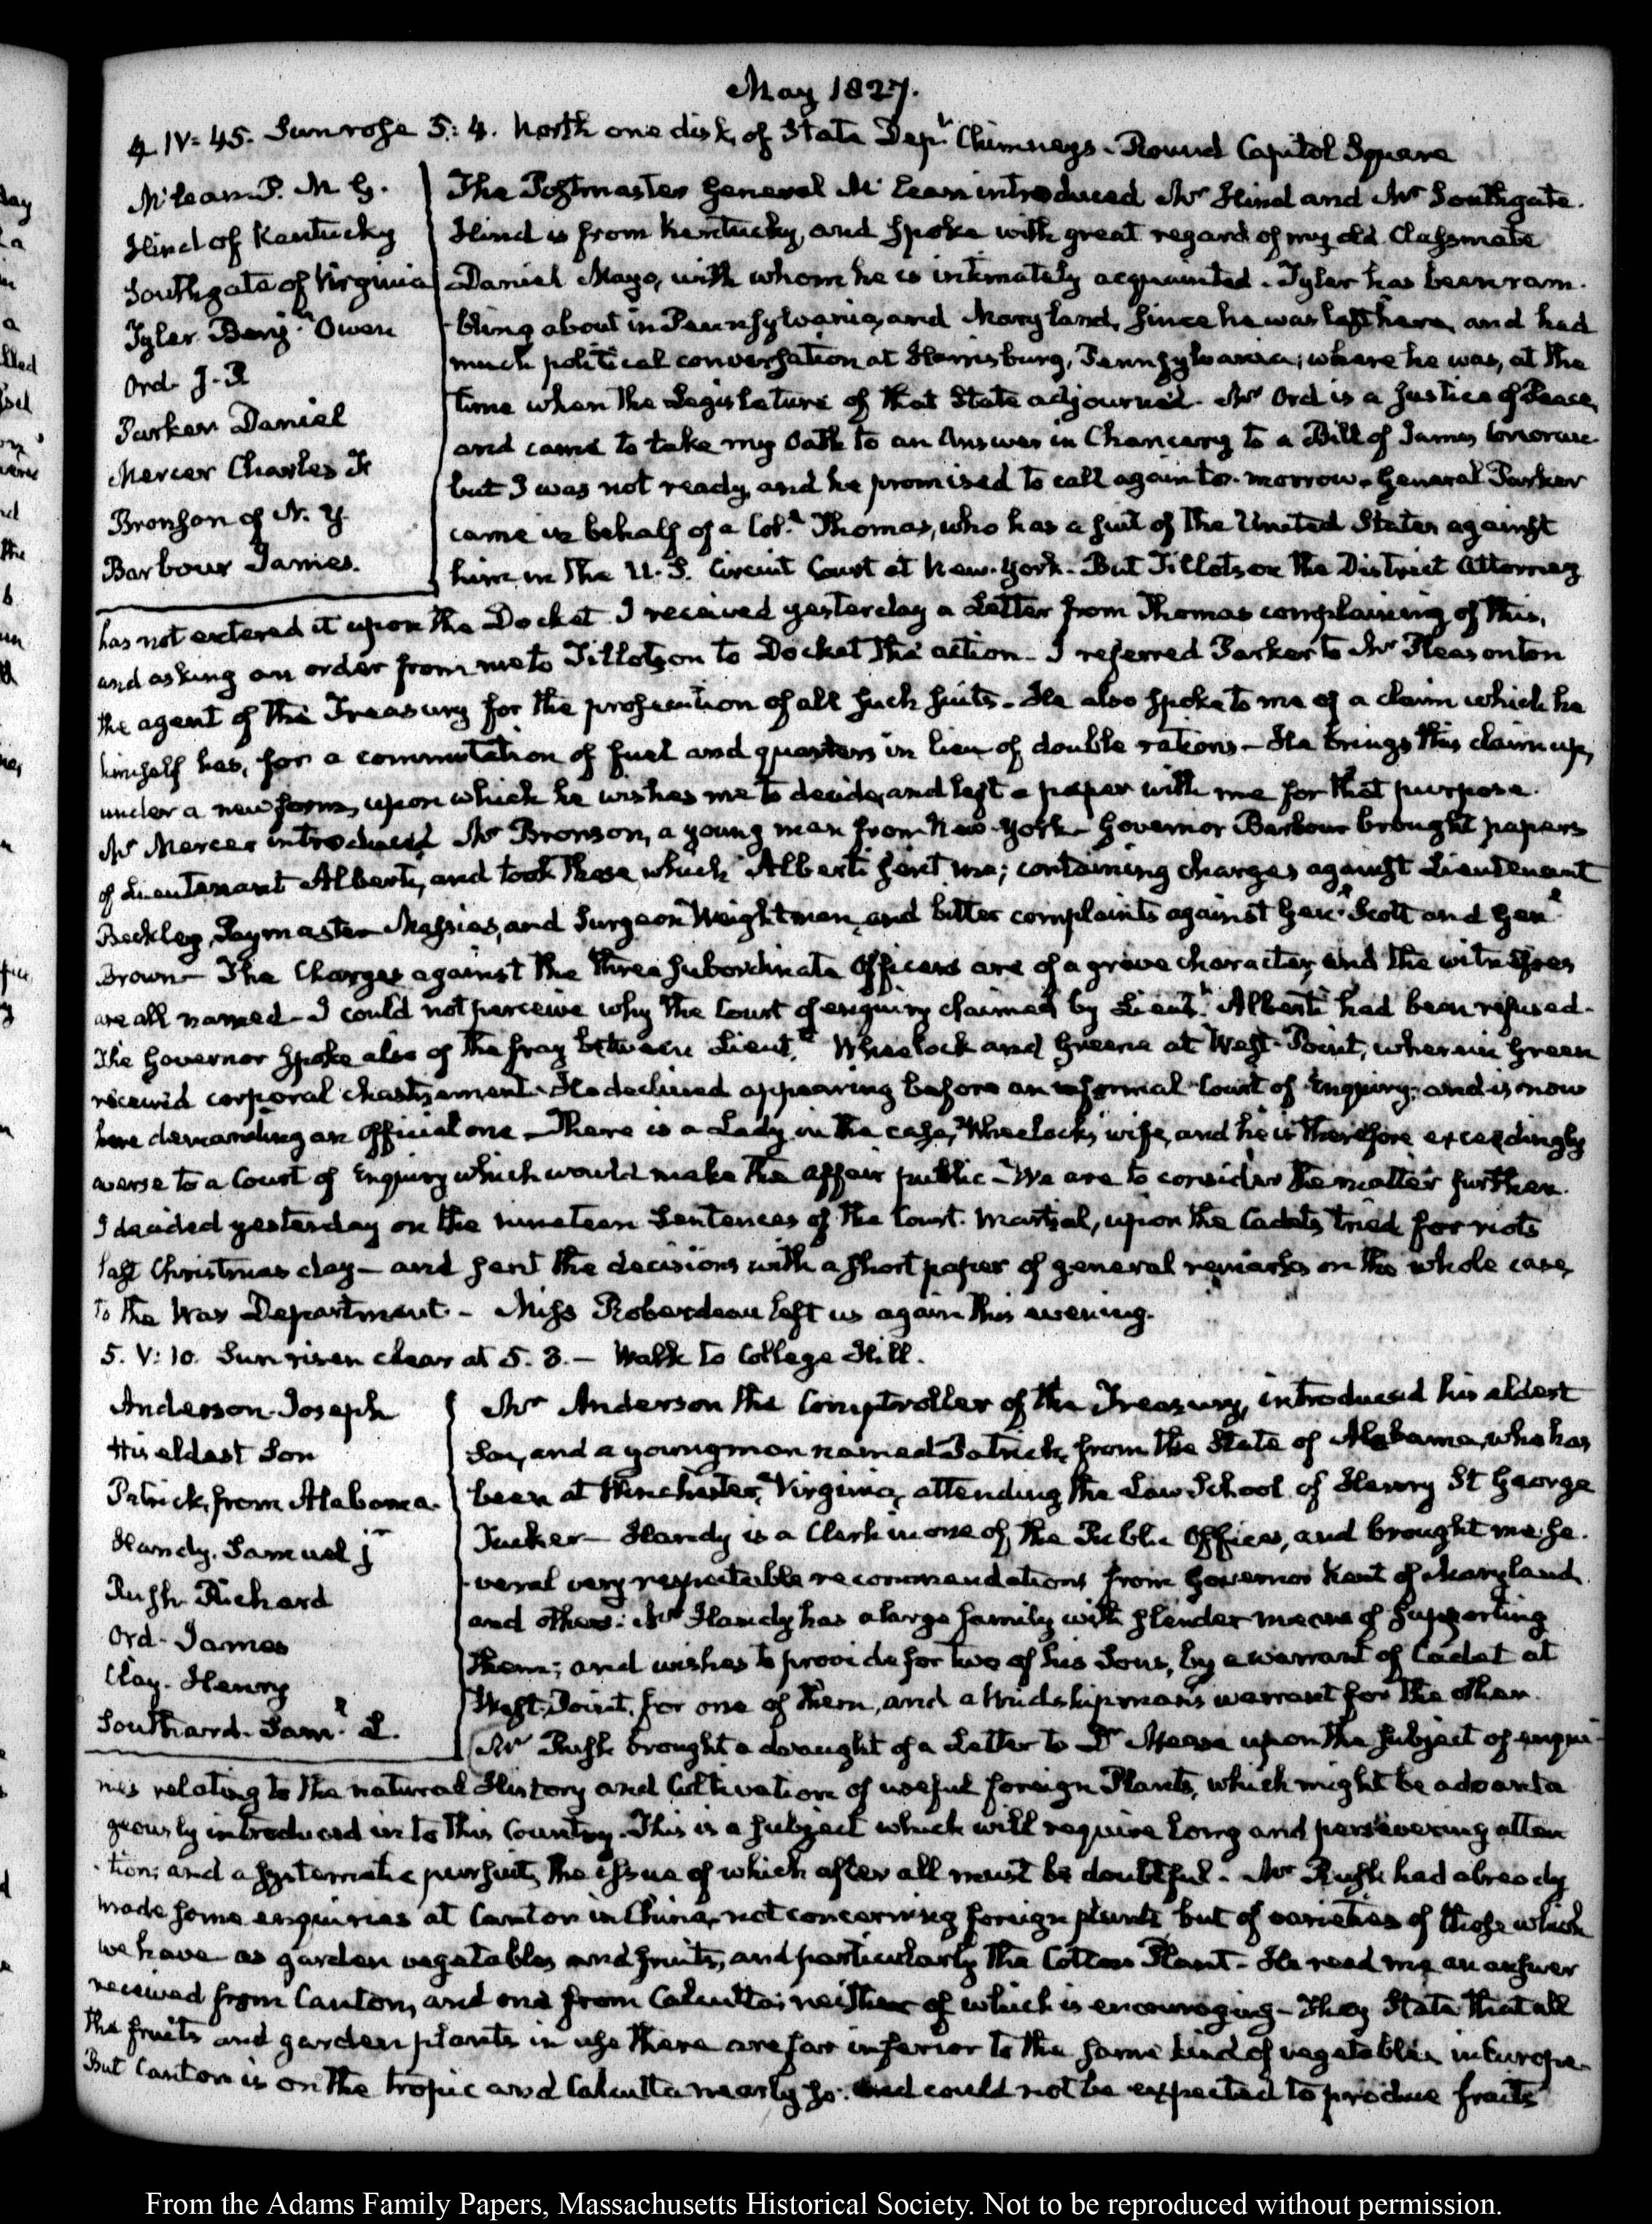 May 1827.
4. IV: 45. Sun rose 5: 4. North one disk, of State Dept. Chimneys. Round Capitol Square
McLean P. M G.
Hind of Kentucky
Southgate of Virginia
Tyler. Benjn. Owen
Ord. J. R
Parker Daniel
Mercer Charles F
Bronson of N. Y.
Barbour James.
The Postmaster General McLean introduced Mr Hind and Mr Southgate.
Hind is from Kentucky, and spoke with great regard of my old Classmate
Daniel Mayo, with whom he is intimately acquainted. Tyler has been ram-
-bling about in Pennsylvania, and Maryland, since he was last here, and had
much political conversation at Harrisburg, Pennsylvania; where he was, at the
time when the Legislature of that State adjourned. Mr Ord is a Justice of Peace,
and came to take my Oath to an Answer in Chancery to a Bill of James
but I was not ready, and he promised to call again to-morrow. General Parker
came in behalf of a Coll. Thomas, who has a suit of the United States against
him in the U. S. Circuit Court at New-York. But Tillotson the District Attorney
has not entered it upon the Docket. I received yesterday a Letter from Thomas complaining of this,
and asking an order from me to Tillotson to Docket the action. I referred Parker to Mr Pleasonton
the agent of the Treasury for the prosecution of all such suits. He also spoke to me of a claim which he
himself has, for a commutation of fuel and quarters in lieu of double rations. He brings this claim up,
under a new form, upon which he wishes me to decide, and left a paper with me for that purpose.
Mr Mercer introduced Mr Bronson, a young man from New-York. Governor Barbour brought papers
of Lieutenant Alberti, and took those which Alberti sent me; containing charges against Lieutenant
Beckley, Paymaster Massias, and Surgeon Weightman, and bitter complaints against Genl. Scott and Genl.
Brown. The Charges against the three subordinate Officers are of a grave character, and the witnesses
are all named. I could not perceive why the Court of enquiry claimed by Lieutt. Alberti had been refused.
The Governor spoke also of the fray between Lieutts. Wheelock and Greene at West-Point, wherein Green
received corporal chastisement. He declined appearing before an informal Court of Enquiry; and is now
here demanding an official one. There is a Lady in the case, Wheelock's wife, and he is therefore exceedingly
averse to a Court of Enquiry which would make the affair public. We are to consider the matter further.
I decided yesterday on the nineteen Sentences of the Court-Martial, upon the Cadets tried for riots
last Christmas day — and sent the decisions with a short paper of general remarks on the whole case,
to the War Department. — Miss Roberdeau left us again this evening.
5. V: 10. Sun risen clear at 5. 3. — Walk to College Hill.
Anderson Joseph
His eldest Son
Patrick, from Alabama.
Handy. Samuel J
Rush Richard
Ord. James
Clay. Henry
Southard. Saml. L.
Mr Anderson the Comptroller of the Treasury, introduced his eldest
Son, and a young man named Patrick, from the State of Alabama, who has
been at Winchester, Virginia, attending the Law School of Henry St George
Tucker. Handy is a Clerk in one of the Public Offices, and brought me se-
-veral very respectable recommendations from Governor Kent of Maryland,
and others. Mr Handy has a large family with slender means of supporting
them; and wishes to provide for two of his Sons, by a warrant of Cadet at
West-Point, for one of them, and a Midshipman's warrant for the other.
Mr Rush brought a draught of a Letter to Dr Mease upon the subject of enqui-
ries relating to the natural History and Cultivation of useful foreign Plants, which might be advanta
geously introduced into this Country. This is a subject which will require long and persevering atten
-tion; and a systematic pursuit, the issue of which after all must be doubtful. Mr Rush had already
made some enquiries at Canton in China, not concerning foreign plants but of varieties of those which
we have as garden vegetables and fruits, and particularly the Cotton Plant. He read me an answer
received from Canton, and one from Calcutta; neither of which is encouraging. They State that all
the fruits and garden plants in use there are far inferior to the same kind of vegetables in Europe.
But Canton is on the tropic and Calcutta nearly so. and could not be expected to produce fruits
From the Adams Family Papers, Massachusetts Historical Society. Not to be reproduced without permission.